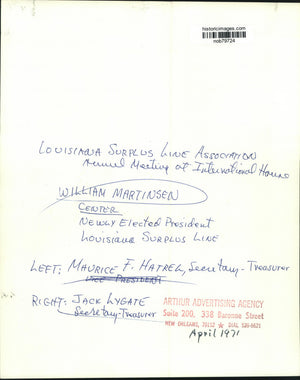 historicimages.com
nob79724
LOUISIANA SURPLUS LINE ASSOCIATION
Annual Meeting at International House
WILLIAM MARTINSEN
CENTER
NEWLY ELECTED PRESIDENT
LOUISIANA SURPLUS LINE
LEFT: MAURICE F. HATREL, Secretary-Treasurer
VICE PRESIDENT
RIGHT: JACK LYGATE
Secretary-Treasurer
ARTHUR ADVERTISING AGENCY
Suite 200, 338 Baronne Street
NEW ORLEANS, 70112 ★ DIAL 581-6621
April 1971